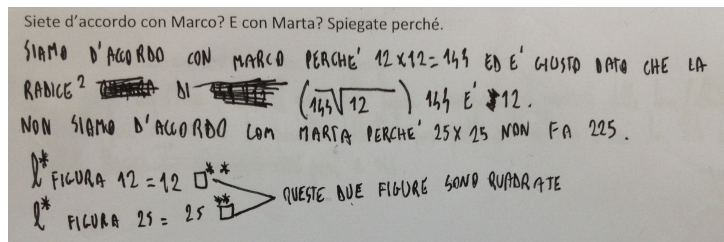 Siete d'accordo con Marco? E con Marta? Spiegate perché.
SIAMO D'ACCORDO CON MARCO PERCHE' 12x12=144 ED E' GIUSTO DATO CHE LA
RADICE² DI (144√12) 144 E' 12.
NON SIAMO D'ACCORDO COM MARTA PERCHE' 25X25 NON FA 225.
l* FIGURA 12 = 12 □**
l* FIGURA 25 = 25 □**
QUESTE DUE FIGURE SONO QUADRATE